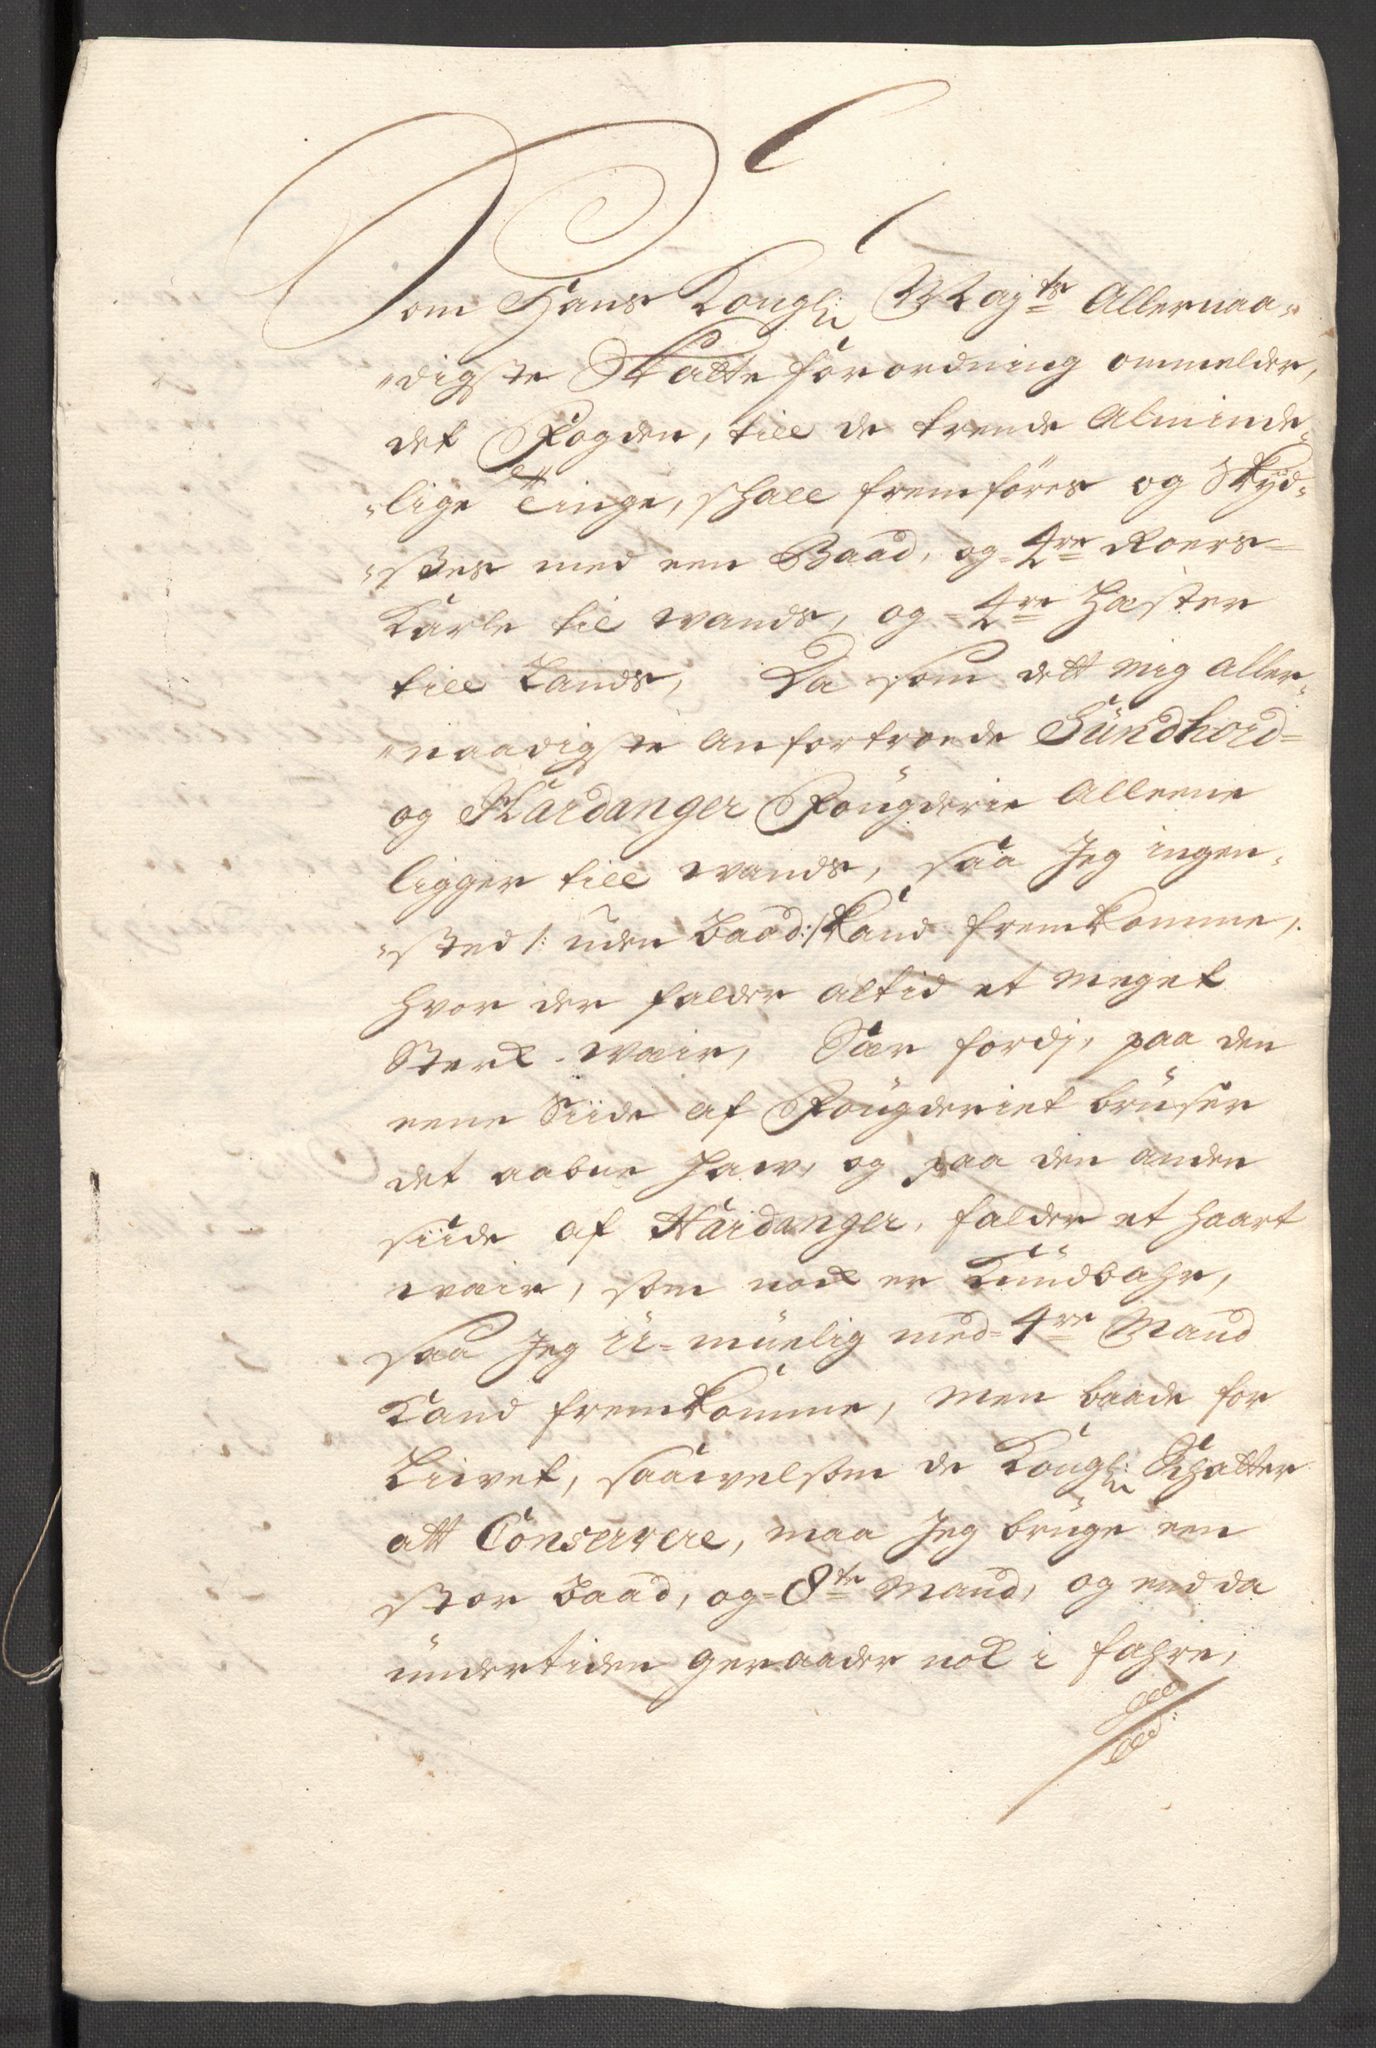 Som Hans Kongl: Maj:ts Allernaa-
digste Skatte forordning ommelder,
det Fogden, till de trende Alminde-
lige Tinge, shall fremføres og Skyd-
stes med een Baad, og 4re Roers-
Karle til wands, og 4re Hæster
till Lands, Da som dett mig aller-
naadigste anfortroede Sundhord-
og Hardanger Fougderie Alleene
ligger till wands, saa Jeg ingen-
sted /: uden Baad:/ Kand fremkomme,
hvor der falder altid et meget
Sterk wair, Sær fordj, paa den
eene Siide af Fougderiet bruser
det aabne Haw, og paa den anden
siide af Hardanger, falder et haart
wair, som nok er Kundbahr,
saa Jeg U-muelig med 4re Mand
Kand fremkomme, men baade for
Livet, saawelsom de Kongl: Schatter
att Conservere, maa Jeg bruge een
stor Baad, og 8te Mand, og endda
undertiden geraader nok i fahre,